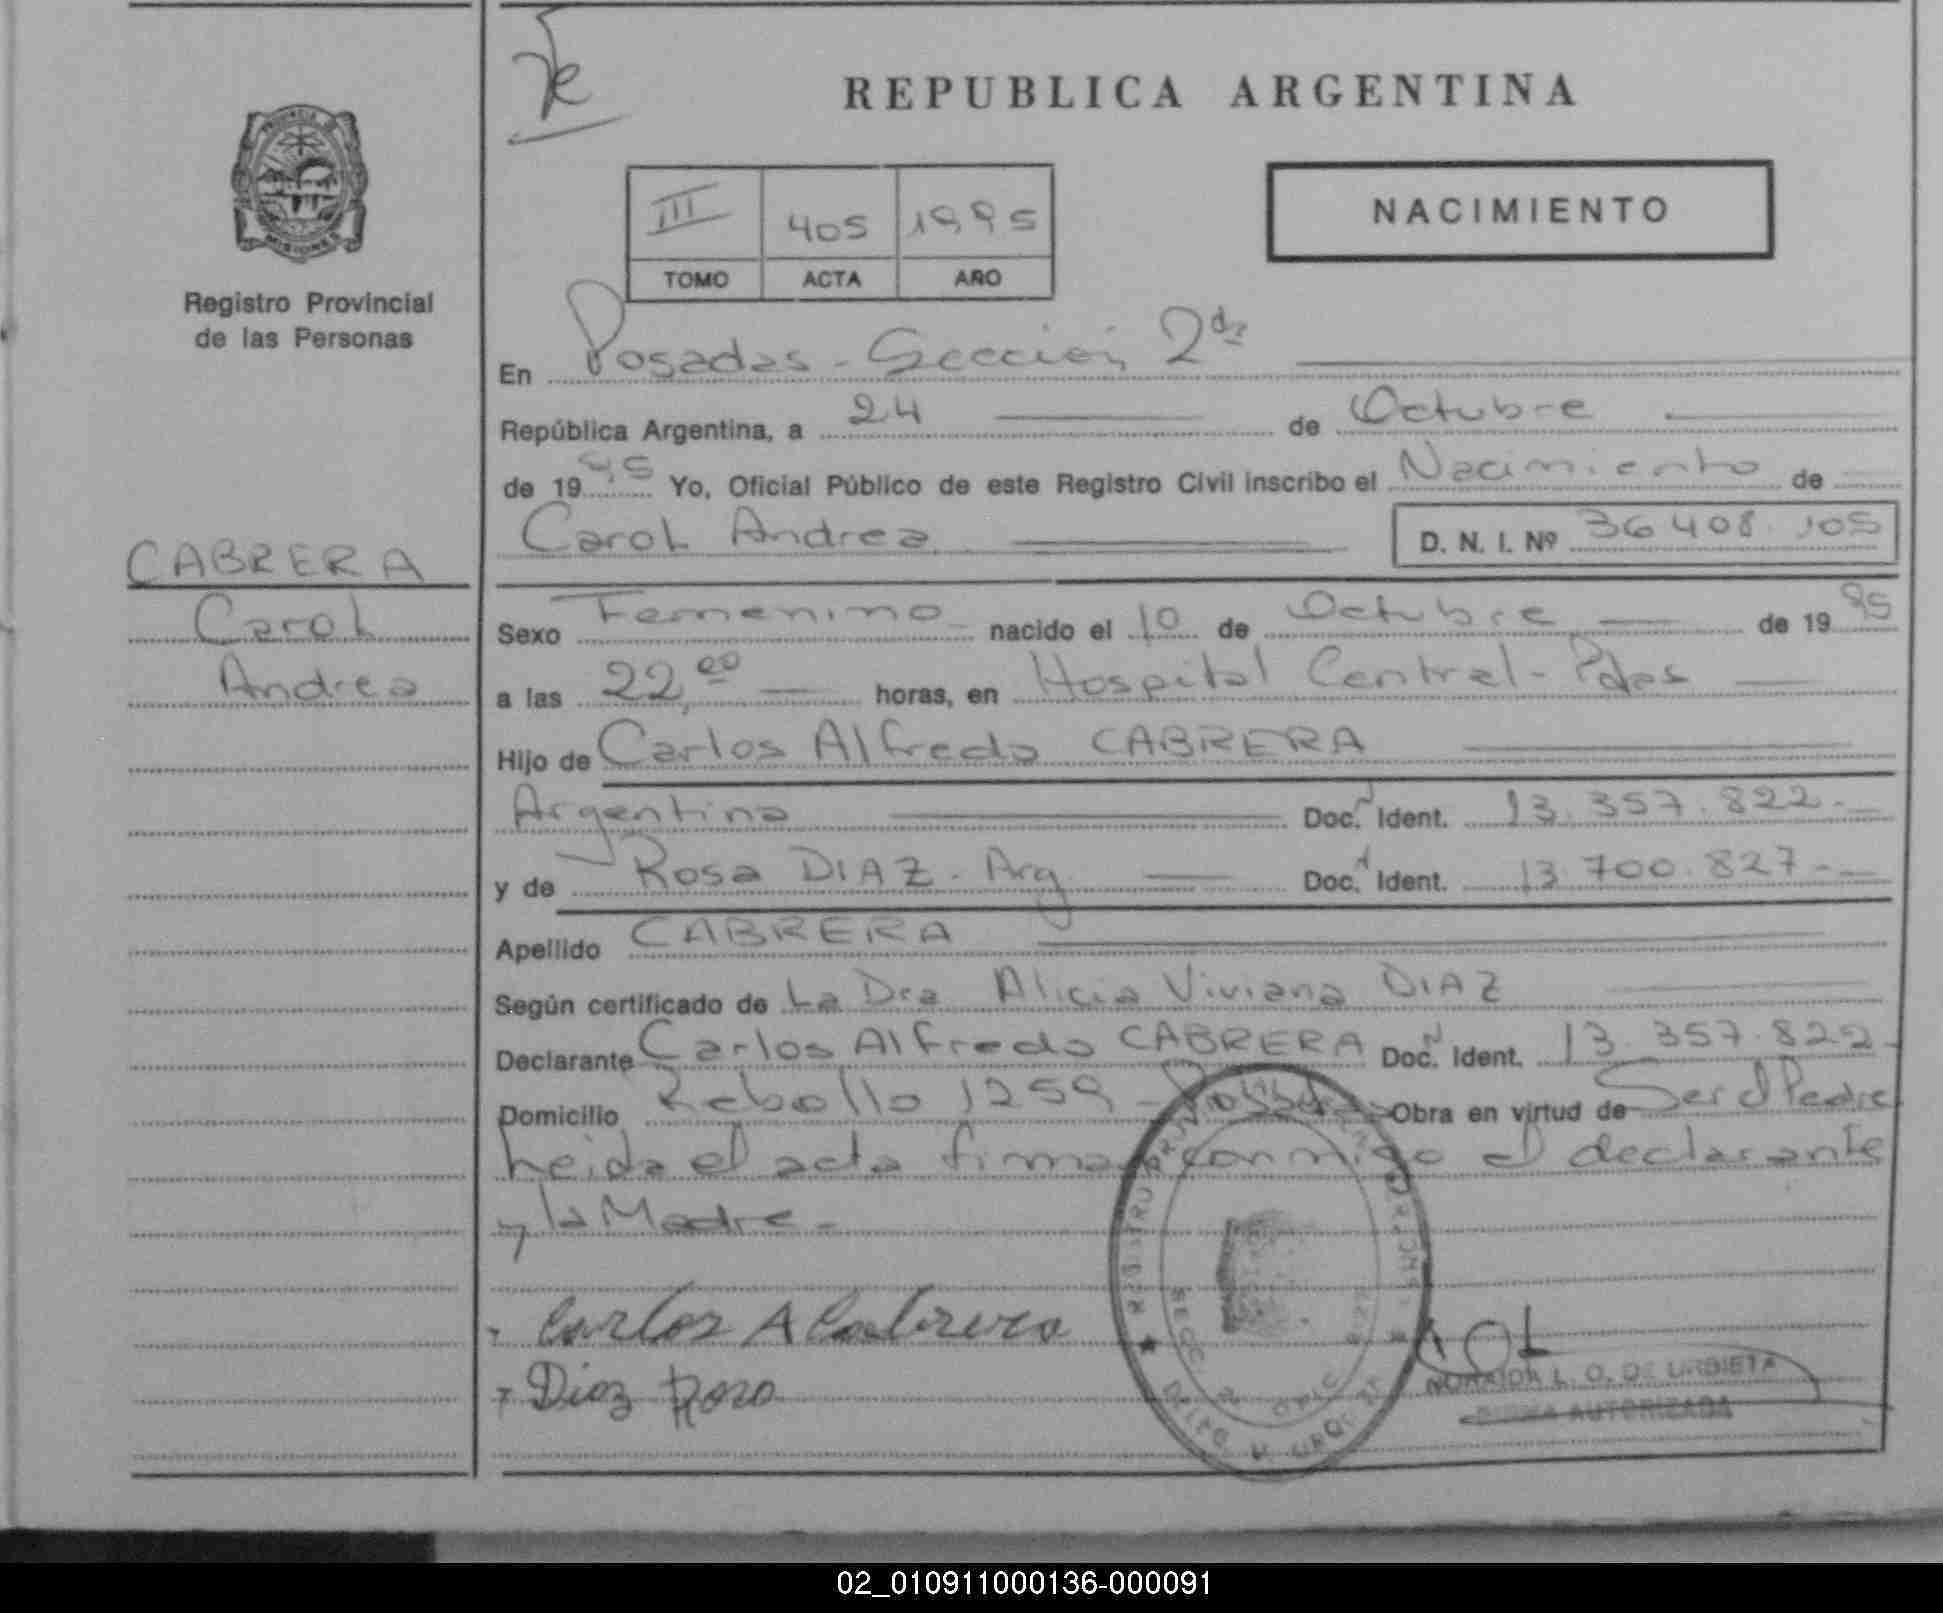 REPUBLICA ARGENTINA
PROVINCIA DE
MISIONES
Registro Provincial
de las Personas
III 405 1995
TOMO ACTA AÑO
NACIMIENTO
En Posadas - Sección 2da
República Argentina, a 24 de Octubre
de 1995 Yo, Oficial Público de este Registro Civil inscribo el Nacimiento de
Carol Andrea D. N. I. Nº 36 408 105
CABRERA
Carol
Andrea
Sexo Femenino nacido el 10 de Octubre de 1995
a las 22,00 horas, en Hospital Central - Pdas
Hijo de Carlos Alfredo CABRERA
Argentina Doc. Ident. 13.357.822.-
y de Rosa DIAZ - Arg. Doc. Ident. 13.700.827.-
Apellido CABRERA
Según certificado de La Dra Alicia Viviana DIAZ
Declarante Carlos Alfredo CABRERA Doc. Ident. 13.357.822-
Domicilio Rebollo 1259 - Posadas Obra en virtud de Ser el Padre
Leida el acta firma conmigo el declarante
y la Madre.-
Carlos A Cabrera
Diaz Rosa
L. O. DE URBIETA
FIRMA AUTORIZADA
02_010911000136-000091